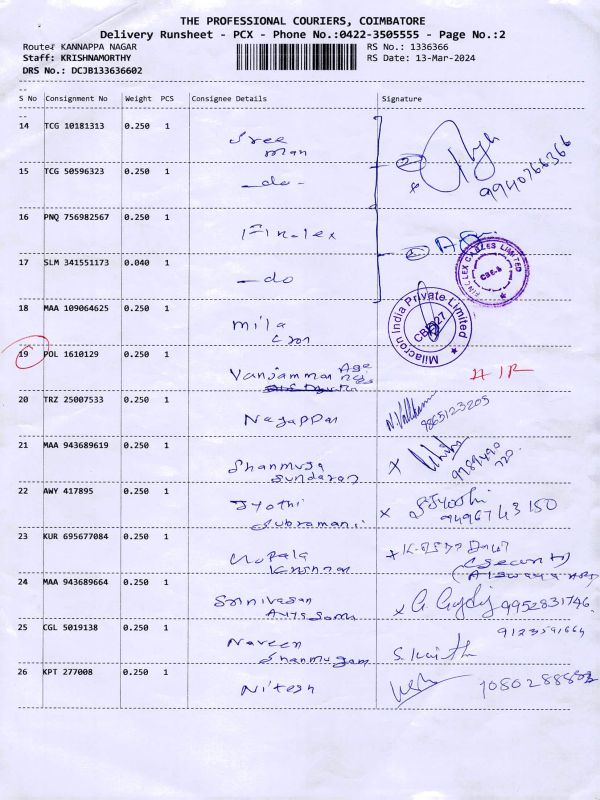 THE PROFESSIONAL COURIERS, COIMBATORE
Delivery Runsheet - PCX - Phone No.:0422-3505555 - Page No.:2
Route: KANNAPPA NAGAR RS No.: 1336366
Staff: KRISHNAMORTHY RS Date: 13-Mar-2024
DRS No.: DCJB133636602
S No Consignment No Weight PCS Consignee Details Signature
14 TCG 10181313 0.250 1 Sree
man
9940766366
15 TCG 50596323 0.250 1 -do-
16 PNQ 756982567 0.250 1 Finolex
FINOLEX CABLES LIMITED
CBE-8
17 SLM 341551173 0.040 1 -do
18 MAA 109064625 0.250 1 Mila
cron
Milacron India Private Limited
19 POL 1610129 0.250 1 Vanjamman Age
20 TRZ 25007533 0.250 1 Nagappan
9865123205
21 MAA 943689619 0.250 1 Shanmuga
Sundaran
22 AWY 417895 0.250 1 Jyothi
Subramani
x S. Jyothi
9496743150
23 KUR 695677084 0.250 1 Gopala
Krishnan
(Security)
24 MAA 943689664 0.250 1 Srinivasan
9952831746
25 CGL 5019138 0.250 1 Naveen
Shanmugam
9123591664
26 KPT 277008 0.250 1 Nitesh